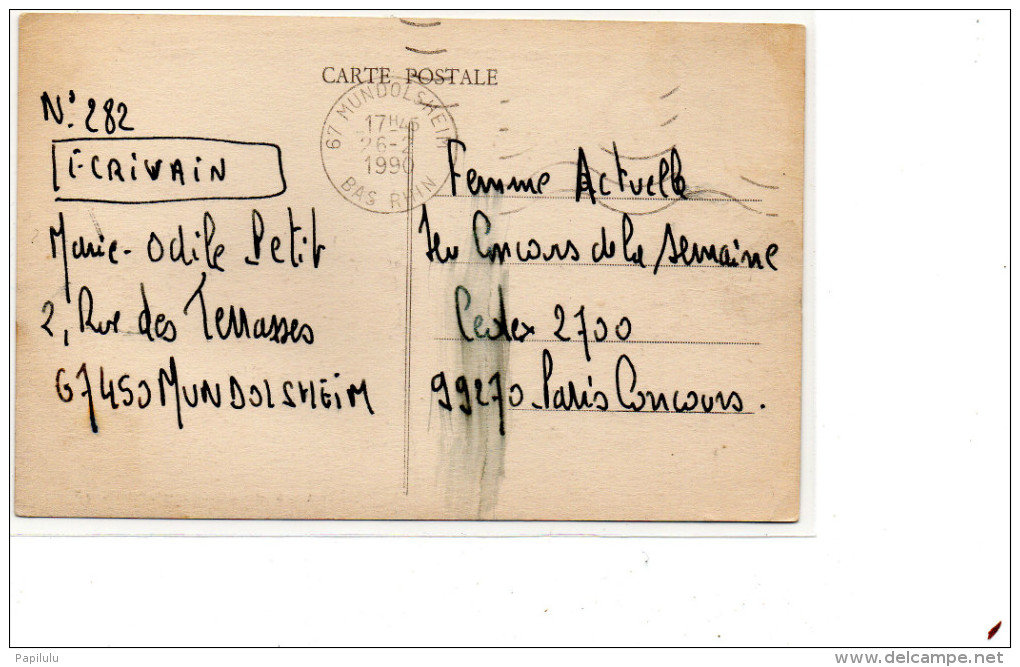 CARTE POSTALE
67 MUNDOLSHEIM
17H45
26-2
1990
BAS RHIN
N° 282
ECRIVAIN
Marie-Odile Petit
2, Rue des Terrasses
67450 MUNDOLSHEIM
Femme Actuelle
Jeu Concours de la semaine
Cedex 2700
99270 Paris Concours.
Papilulu
www.delcampe.net